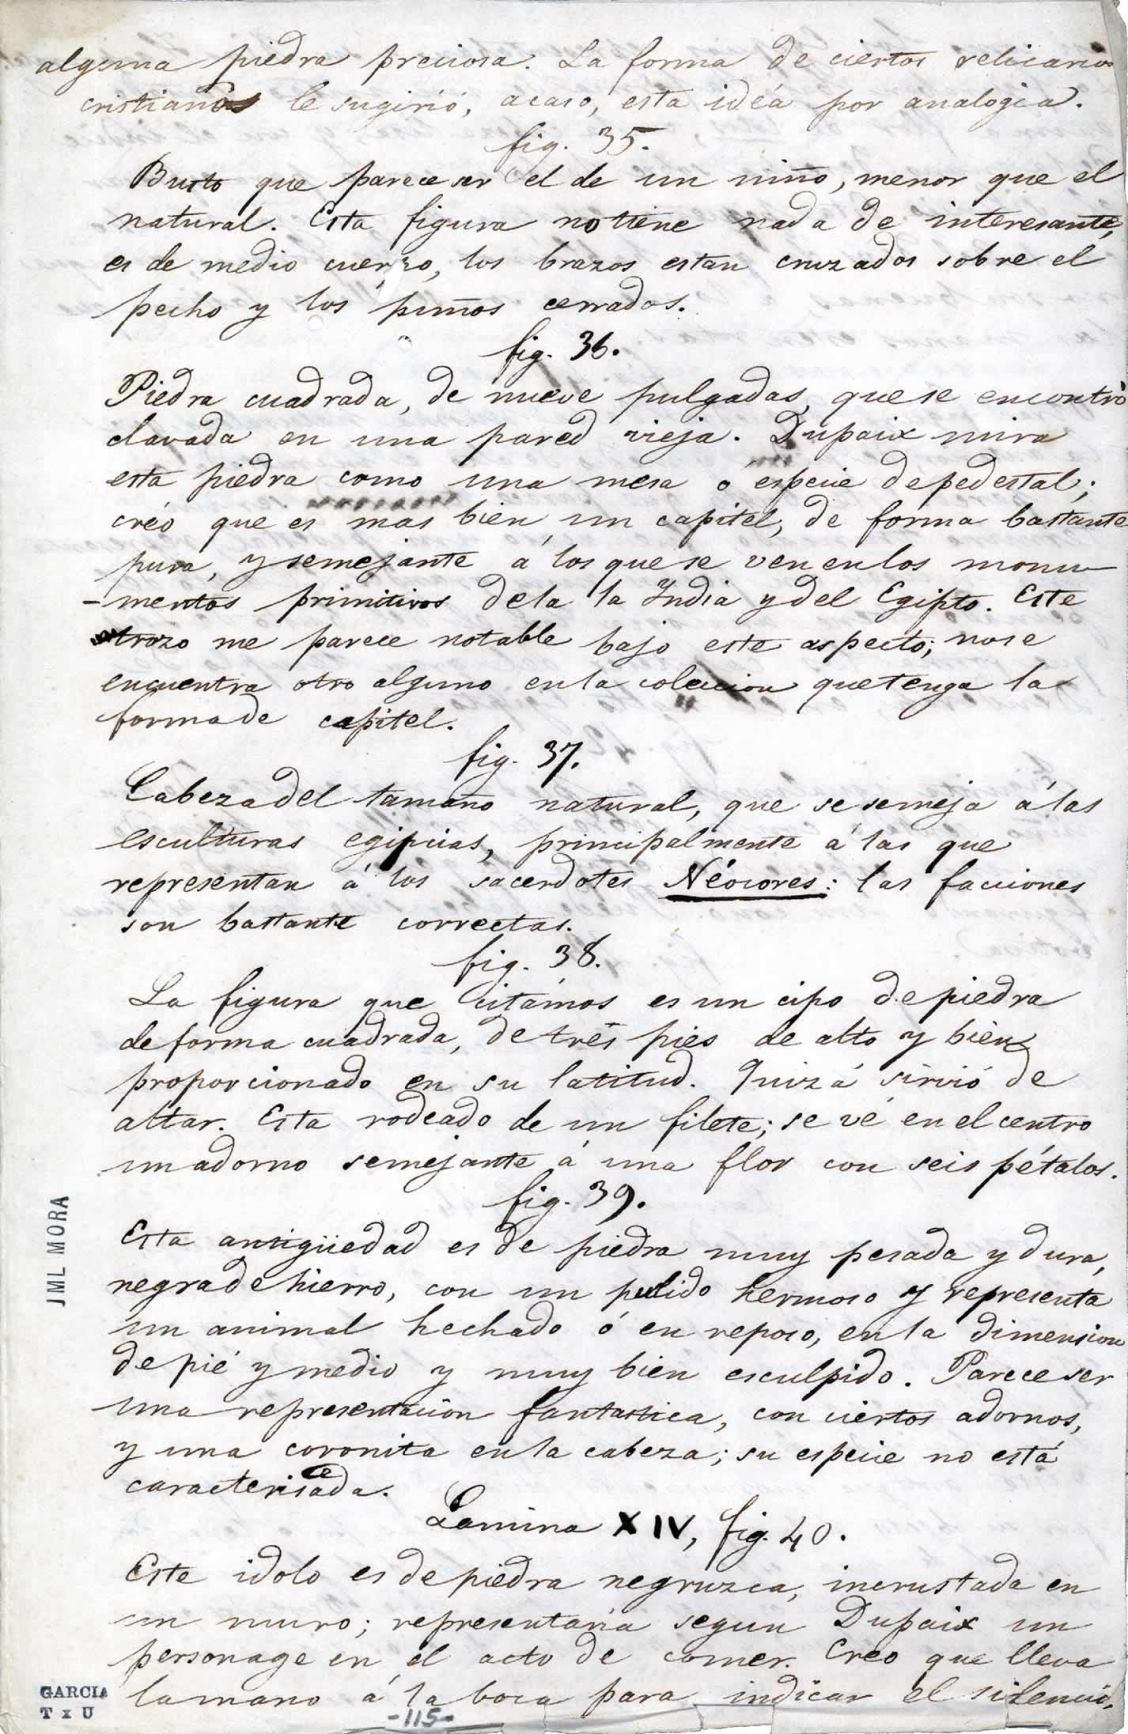 alguna piedra preciosa. La forma de ciertos relicarios
cristianos le sugirió, acaso, esta idéa por analogia.
fig. 35.
Busto que parece ser el de un niño, menor que el
natural. Esta figura no tiene nada de interesante,
es de medio cuerpo, los brazos estan cruzados sobre el
pecho y los puños cerrados.
fig. 36.
Piedra cuadrada, de nueve pulgadas, que se encontró
clavada en una pared vieja. Dupaix mira
esta piedra como una mesa ó especie de pedestal;
créo que es mas bien un capitel, de forma bastante
pura, y semejante á los que se ven en los monu-
-mentos primitivos de la la India y del Egipto. Este
trozo me parece notable bajo este aspecto; no se
encuentra otro alguno en la coleccion que tenga la
forma de capitel.
fig. 37.
Cabeza del tamaño natural, que se semeja á las
esculturas egipcias, principalmente á las que
representan á los sacerdotes Néocores: las facciones
son bastante correctas.
fig. 38.
La figura que citámos es un cipo de piedra
de forma cuadrada, de tres pies de alto y bien
proporcionado en su latitud. Quizá sirvió de
altar. Esta rodeado de un filete; se vé en el centro
un adorno semejante á una flor con seis pétalos.
fig. 39.
Esta antigüedad es de piedra muy pesada y dura,
negra de hierro, con un pulido hermoso y representa
un animal hechado ó en reposo, en la dimension
de pié y medio y muy bien esculpido. Parece ser
una representacion fantastica, con ciertos adornos,
y una coronita en la cabeza; su especie no está
caracterisada.
Lamina XIV, fig. 40.
Este idolo es de piedra negruzca, incrustada en
un muro; representaria segun Dupaix un
personage en el acto de comer. Creo que lleva
la mano á la boca para indicar el silencio,
-115-
JML MORA
GARCIA
T x U